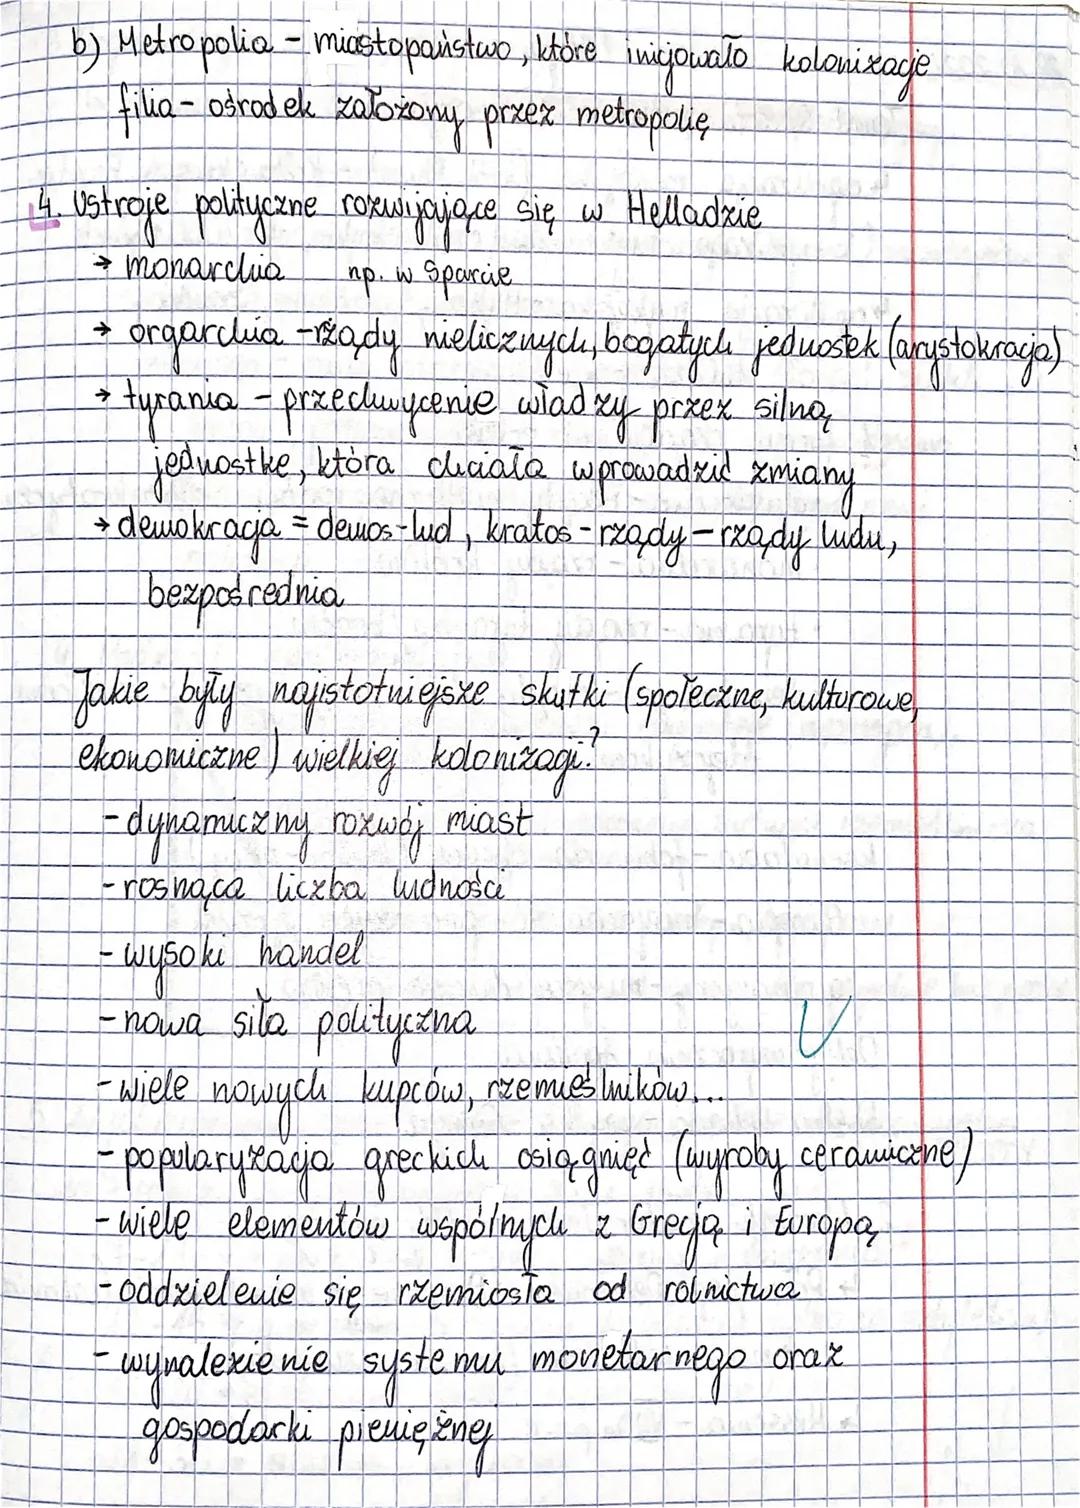 b) Metropolia - miastopaństwo, które inicjowało kolonizacje
filia - ośrodek założony przez metropolię
4. Ustroje polityczne rozwijające się w Helladzie
→ monarchia np. w Sparcie
→ orgarchia - rządy nielicznych, bogatych jednostek (arystokracja)
→ tyrania - przechwycenie władzy przez silną
jednostkę, która chciała wprowadzić zmiany
→ demokracja = demos - lud, kratos - rządy - rządy ludu,
bezpośrednia
Jakie były najistotniejsze skutki (społeczne, kulturowe,
ekonomiczne) wielkiej kolonizacji?
- dynamiczny rozwój miast
- rosnąca liczba ludności
- wysoki handel
- nowa siła polityczna
- wiele nowych kupców, rzemieślników...
- popularyzacja greckich osiągnięć (wyroby ceramiczne)
- wiele elementów wspólnych z Grecją i Europą
- oddzielenie się rzemiosła od rolnictwa
- wynalezienie systemu monetarnego oraz
gospodarki pieniężnej